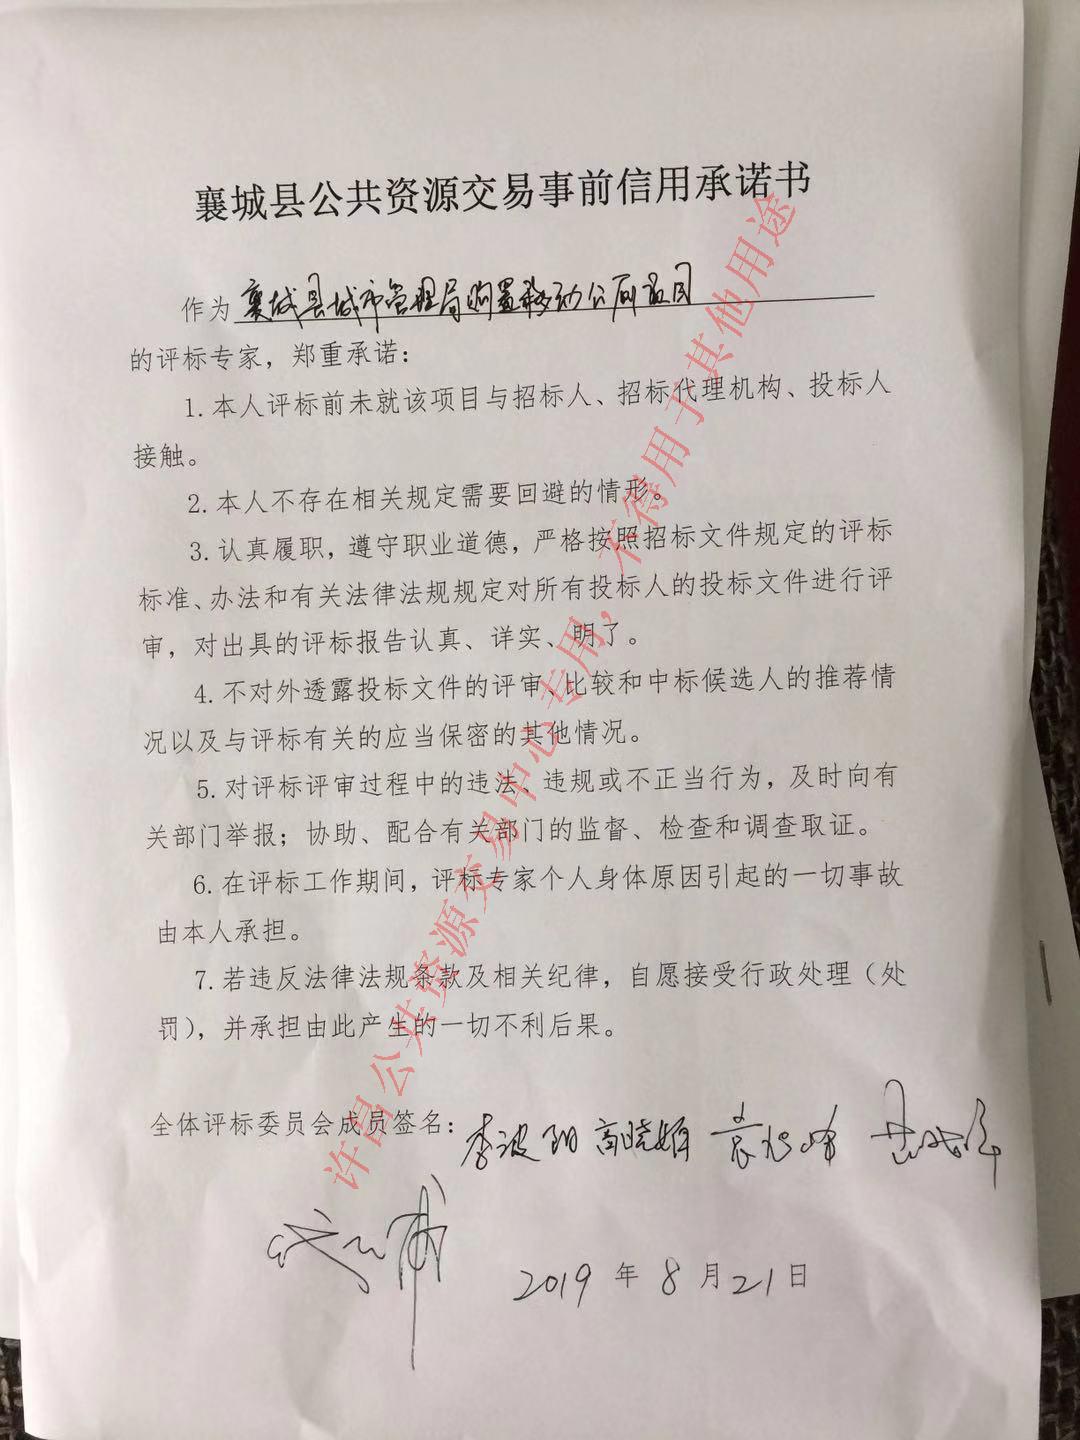 襄城县公共资源交易事前信用承诺书
作为 襄城县城市管理局购置移动公厕项目
的评标专家，郑重承诺：
1.本人评标前未就该项目与招标人、招标代理机构、投标人
接触。
2.本人不存在相关规定需要回避的情形。
3.认真履职，遵守职业道德，严格按照招标文件规定的评标
标准、办法和有关法律法规规定对所有投标人的投标文件进行评
审，对出具的评标报告认真、详实、明了。
4.不对外透露投标文件的评审、比较和中标候选人的推荐情
况以及与评标有关的应当保密的其他情况。
5.对评标评审过程中的违法、违规或不正当行为，及时向有
关部门举报；协助、配合有关部门的监督、检查和调查取证。
6.在评标工作期间，评标专家个人身体原因引起的一切事故
由本人承担。
7.若违反法律法规条款及相关纪律，自愿接受行政处理（处
罚），并承担由此产生的一切不利后果。
全体评标委员会成员签名：李波 高晓娟
2019 年 8 月 21 日
许昌公共资源交易中心专用，不得用于其他用途